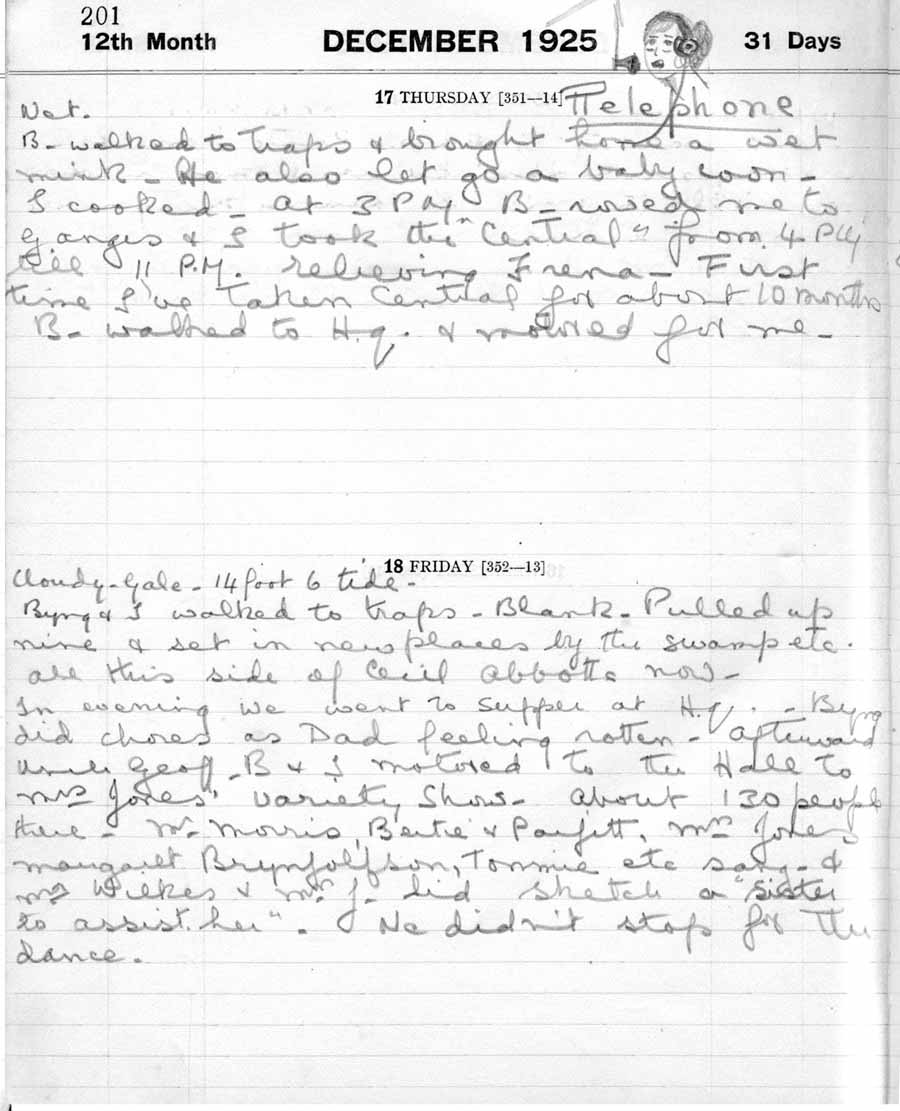 201
12th Month DECEMBER 1925 31 Days
17 THURSDAY [351—14] Telephone
Wet.
B- walked to traps & brought home a wet
mink - He also let go a baby coon -
I cooked - at 3 P.M. B- rowed me to
Ganges & I took the "Central" from 4 P.M.
till 11 P.M. relieving Frena - First
time I've taken Central for about 10 months
B- walked to H.q. & motored for me -
18 FRIDAY [352—13]
Cloudy - Gale - 14 foot 6 tide -
Byng & I walked to traps - Blank - Pulled up
nine & set in new places by the swamp etc.
all this side of Cecil Abbotts now -
In evening we went to supper at H.q. - Byng
did chores as Dad feeling rotten - afterward
Uncle Geoff - B & I motored to the Hall to
Mrs Jones' Variety Show - about 130 people
there - Mr. Morris, Bertie & Parfitt, Mrs Jones
Margaret Brynjolfson, Tommie etc sang - &
Mrs Wilkes & Mr. J. did sketch a "sister
to assist her". We didn't stop for the
dance.